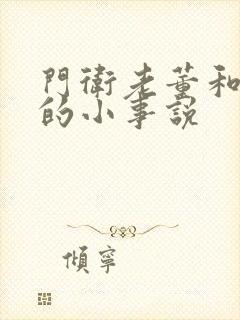 門衛老董和
的小事說
傾寧